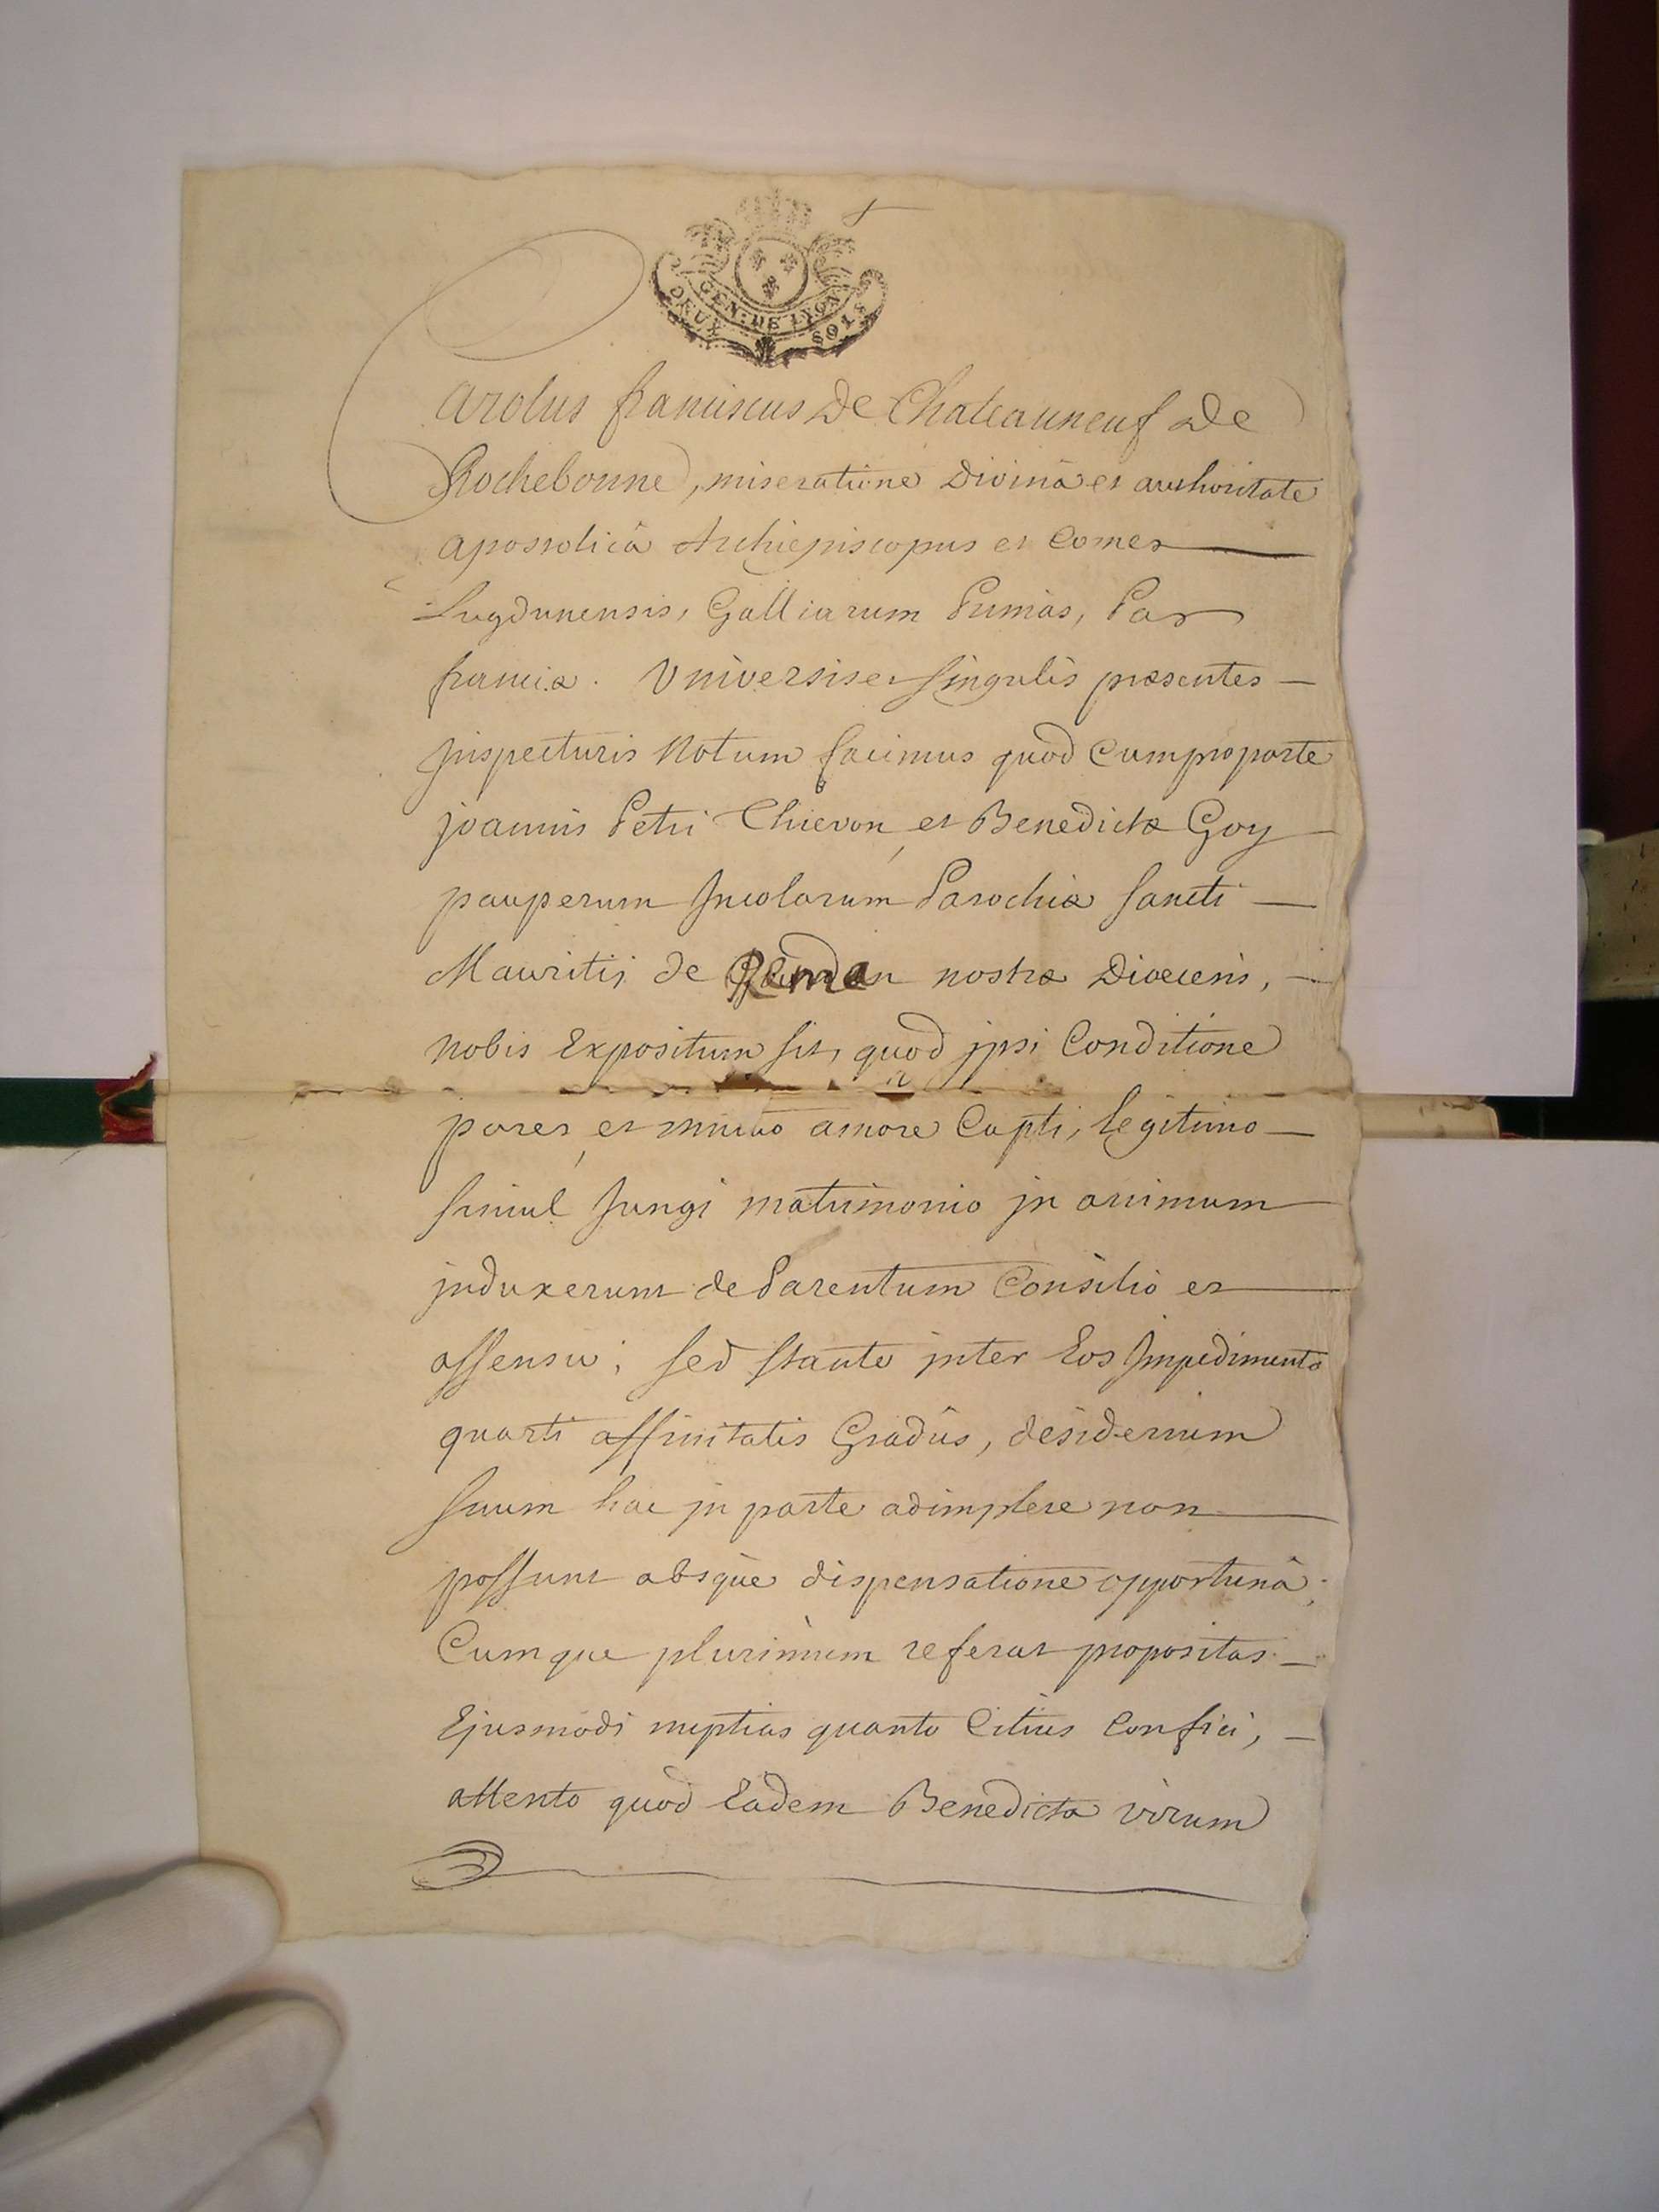 GEN: DE LYON
DEUX SOLS
Carolus franciscus De Chateauneuf De
Rochebonne, miseratione Divinâ et authoritate
apostolicâ Archiepiscopus et Comes
Lugdunensis, Galliarum Primas, Par
franciæ. Universis et singulis præsentes
Inspecturis Notum facimus quod Cum pro parte
joannis Petri Chievon et Benedictæ Goy
pauperum Incolarum Parochiæ sancti
Mauritij de nostræ Diœcesis,
nobis Expositum sit, quod jpsi Conditione
pares, et mutuo amore Capti, legitimo
simul Jungi matrimonio jn animum
jnduxerunt de Parentum Consilio et
assensu; sed stante jnter Eos Impedimento
quarti affinitatis Gradûs, desiderium
suum hac jn parte adimplere non
possunt absque dispensatione opportunâ;
Cumque plurimùm referat propositas
Ejusmodi nuptias quanto Citius Confici,
attento quod Eadem Benedicta virum